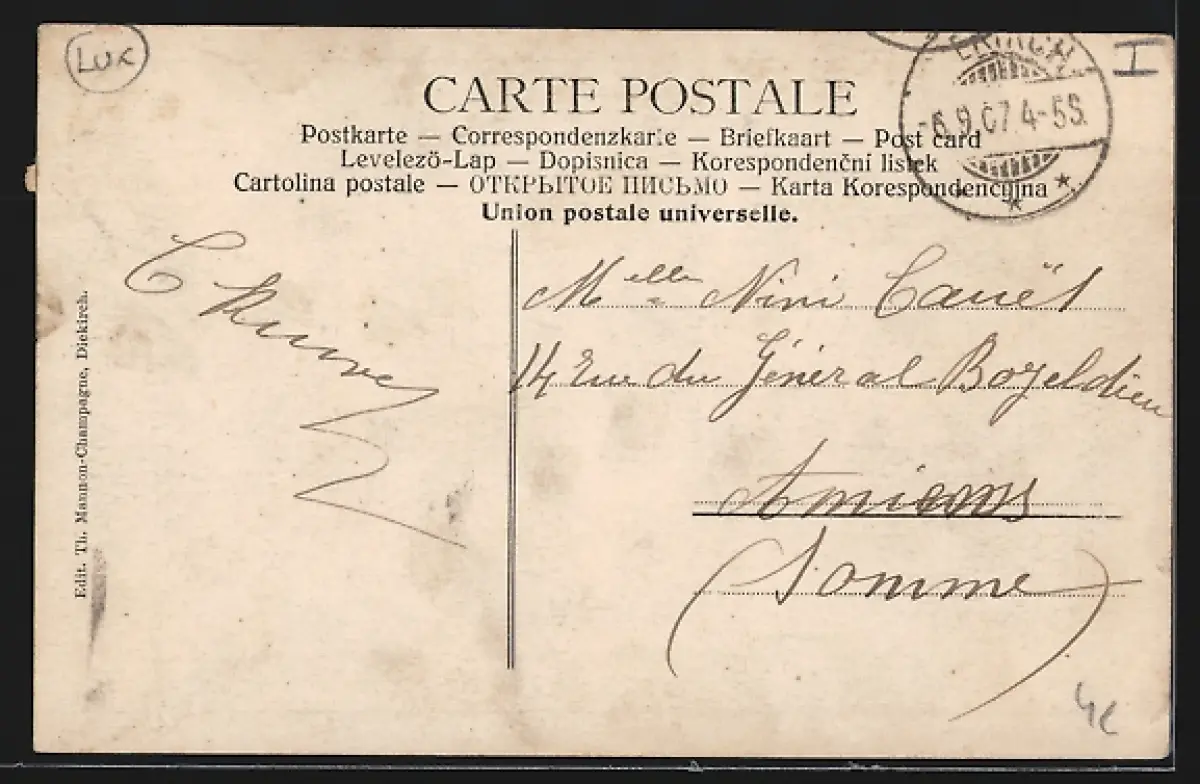 LUX
EKIRCH
-6.9.07.4-5S.
H
CARTE POSTALE
Postkarte — Correspondenzkarte — Briefkaart — Post card
Levelezö-Lap — Dopisnica — Korespondenční listek
Cartolina postale — ОТКРЫТОЕ ПИСЬМО — Karta Korespondencyjna
Union postale universelle.
Edit. Th. Mannon-Champagne, Diekirch.
Melle Nini Cauët
14 Rue du Général Boyeldieu
Amiens
(Somme)